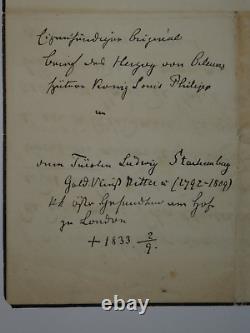 Eigenhändiger Original
Brief des Herzog von Orleans
später König Louis Philipp
an
den Fürsten Ludwig Starhemberg
Gold. Vließ Ritter (1792-1809)
kk östr Gesandten am Hof
zu London
+ 1833 2/9.
ebay